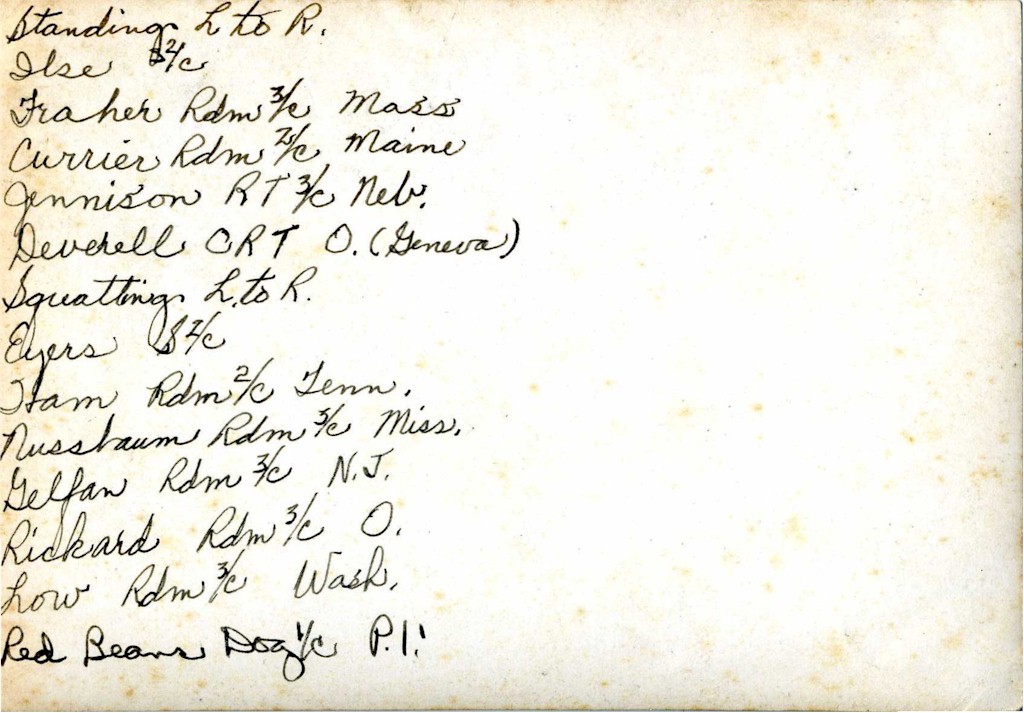 Standing L to R.
Ilse S2/c
Fraher Rdm 3/c Mass
Currier Rdm 2/c Maine
Jennison RT 3/c Neb.
Deverell CRT O. (Geneva)
Squatting L. to R.
Eyers S2/c
Ham Rdm 2/c Tenn.
Nussbaum Rdm 3/c Miss.
Gelfan Rdm 3/c N.J.
Rickard Rdm 3/c O.
Low Rdm 3/c Wash.
Red Beans Dog 1/c P.I.